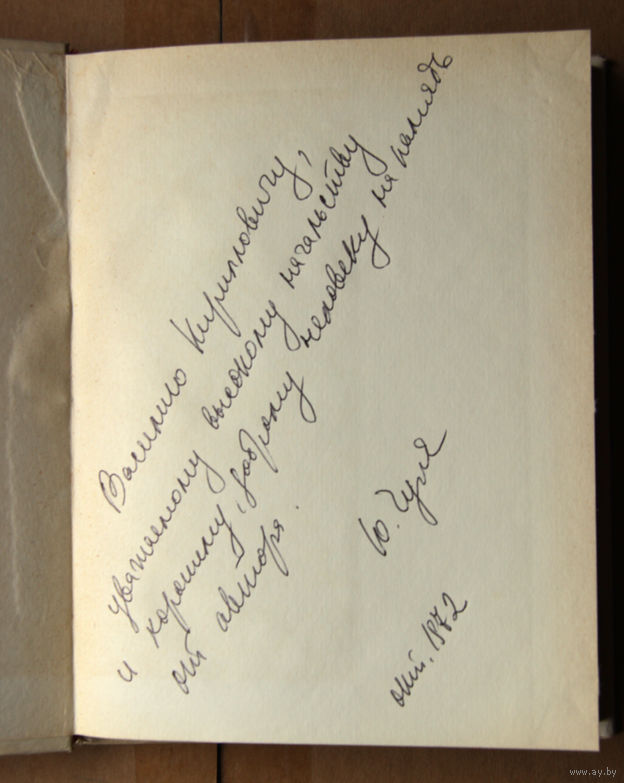 Василию Кирилловичу,
уважаемому высокому начальству
и хорошему, доброму человеку на память
от автора.
Ю.
окт. 1972
www.ay.by